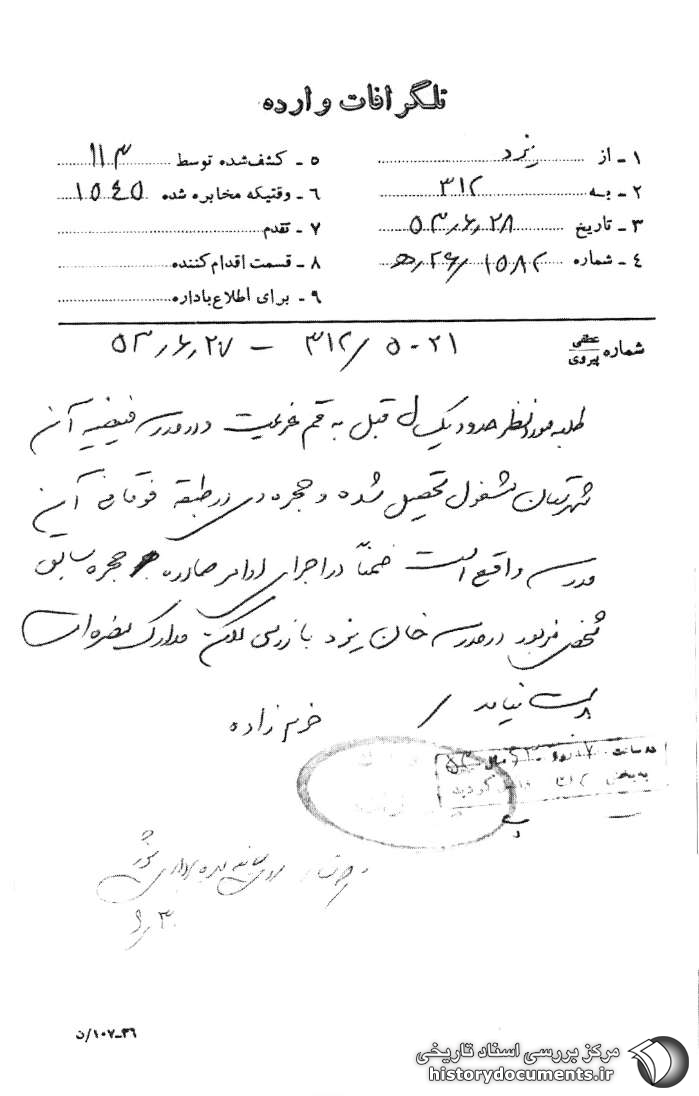 تلگرافات وارده
۱ - از یزد
۲ - به ۳۱۲
۳ - تاریخ ۵۳٫۶٫۲۸
۴ - شماره ۱۵۸۲/۲۶٫ه
۵ - کشف شده توسط ۱۱۳
۶ - وقتیکه مخابره شده ۱۵۴۵
۷ - تقدم
۸ - قسمت اقدام کننده
۹ - برای اطلاع باداره
شماره عطفی پیروی ۵۰۲۱ / ۳۱۲ - ۵۳٫۶٫۲۷
طلبه مورد نظر حدود یک سال قبل به قم عزیمت و در مدرسه فیضیه آن
شهرستان مشغول تحصیل شده و حجره وی در طبقه فوقانی آن
مدرسه واقع است ضمناً در اجرای اوامر صادره حجره سابق
شخص مزبور در مدرسه خان یزد بازرسی لکن مدارک مضره ای
بدست نیامد / خرم زاده
ساعت ۷ روز سال ۵۳
به بخش ۳۱۲ گردید
شود
۶٫۳۰
۳۶-۱۰۷/ن
مرکز بررسی اسناد تاریخی
historydocuments.ir